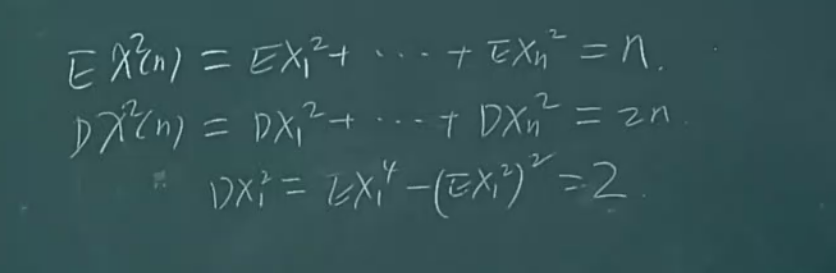 Eχ²(n) = EX₁² + ⋯ + EXₙ² = n.
Dχ²(n) = DX₁² + ⋯ + DXₙ² = 2n.
DX₁² = EX₁⁴ - (EX₁²)² = 2.